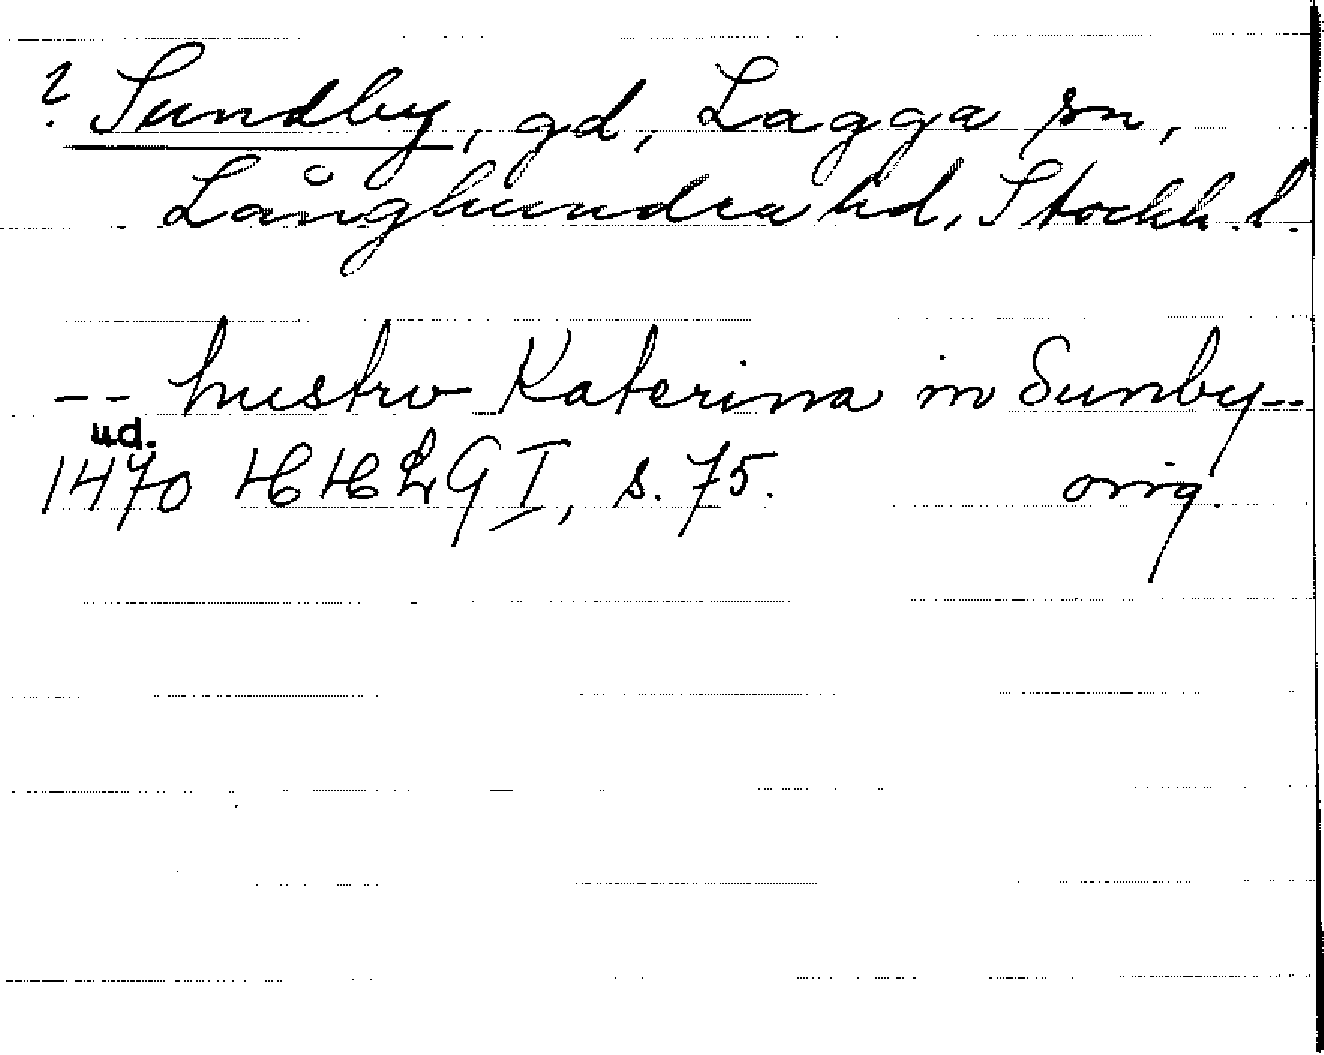 ? Sundby, gd, Lagga sn,
Långhundra hd, Stockh. l.
-- hustrv Katerina in Sunby--
ud.
1470 HHLG I, s. 75. orig.